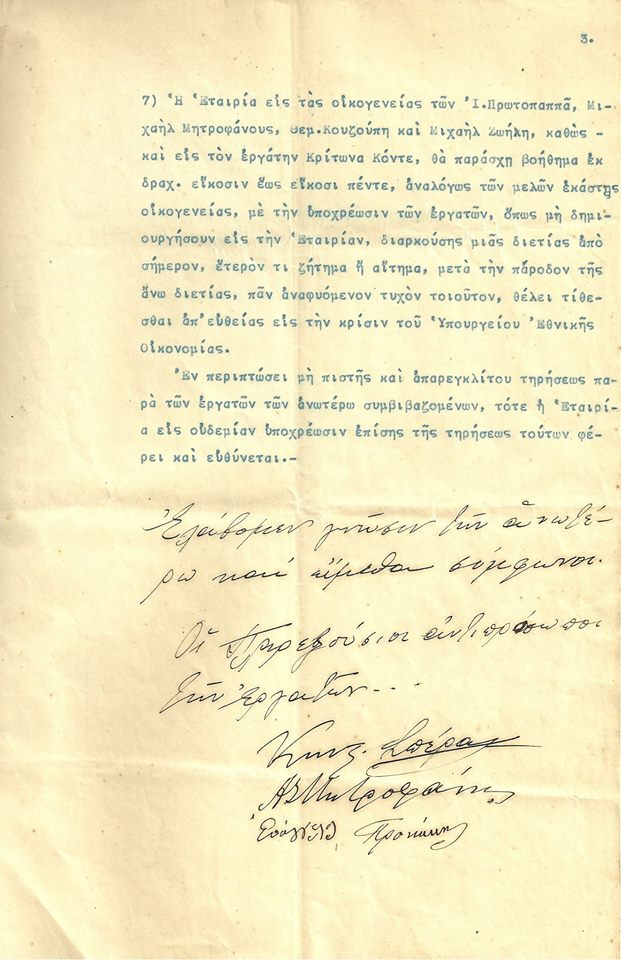 3.
7) Ἡ Ἑταιρία εἰς τὰς οἰκογενείας τῶν Ἰ.Πρωτοπαππᾶ, Μι-
χαὴλ Μητροφάνους, Θεμ.Κουζούπη καὶ Μιχαὴλ Ζωήλη, καθὼς -
καὶ εἰς τὸν ἐργάτην Κρίτωνα Κόντε, θὰ παράσχῃ βοήθημα ἐκ
δραχ. εἴκοσιν ἕως εἴκοσι πέντε, ἀναλόγως τῶν μελῶν ἑκάστης
οἰκογενείας, μὲ τὴν ὑποχρέωσιν τῶν ἐργατῶν, ὅπως μὴ δημι-
ουργήσουν εἰς τὴν Ἑταιρίαν, διαρκούσης μιᾶς διετίας ἀπὸ
σήμερον, ἕτερόν τι ζήτημα ἢ αἴτημα, μετὰ τὴν πάροδον τῆς
ἄνω διετίας, πᾶν ἀναφυόμενον τυχὸν τοιοῦτον, θέλει τίθε-
σθαι ἀπ'εὐθείας εἰς τὴν κρίσιν τοῦ Ὑπουργείου Ἐθνικῆς
Οἰκονομίας.
Ἐν περιπτώσει μὴ πιστῆς καὶ ἀπαρεγκλίτου τηρήσεως πα-
ρὰ τῶν ἐργατῶν τῶν ἀνωτέρω συμβιβαζομένων, τότε ἡ Ἑταιρί-
α εἰς οὐδεμίαν ὑποχρέωσιν ἐπίσης τῆς τηρήσεως τούτων φέ-
ρει καὶ εὐθύνεται.-
Ἐλάβομεν γνῶσιν τῶν ἀνωτέ-
ρω καὶ εἴμεθα σύμφωνοι.
Οἱ Πληρεξούσιοι ἀντιπρόσωποι
τῶν Ἐργατῶν...
Κωνς. Σπέρας
Μητροφάνης